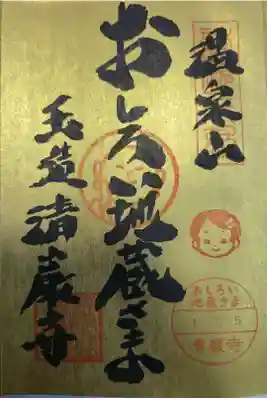 温泉山
おしろい地蔵さま
玉造清巌寺
おしろい
地蔵さま
1 5
清巌寺